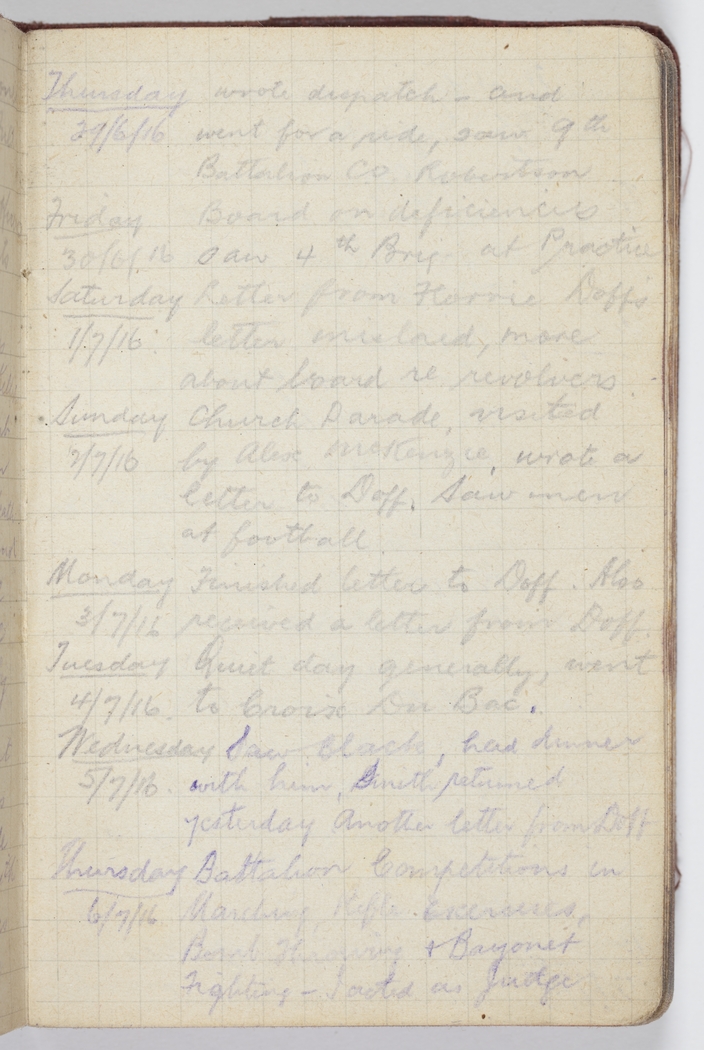 Thursday wrote dispatch - and
29/6/16 went for a ride, saw 9th
Battalion CO. Robertson
Friday Board on deficiencies
30/6/16 saw 4th Brig. at Practice
Saturday Letter from Florrie Doff's
1/7/16 letter inclosed, more
about board re revolvers
Sunday Church Parade, visited
2/7/16 by Alex McKenzie, wrote a
letter to Doff. Saw men
at football
Monday Finished letter to Doff. Also
3/7/16 received a letter from Doff.
Tuesday Quiet day generally, went
4/7/16. to Croix Du Bac.
Wednesday Saw Black, had dinner
5/7/16. with him, Smith returned
yesterday Another letter from Doff
Thursday Battalion Competitions in
6/7/16 Marching, Rifle Exercises,
Bomb Throwing & Bayonet
Fighting - I acted as Judge